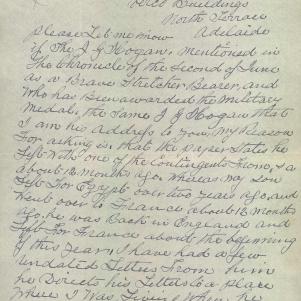 Buildings
North Terrace
Adelaide
Please Let me Know
if The J G Hogan, mentioned in
The Chronicle of the Second of June
as a Brave Stretcher Bearer, and
Who has Been awarded the Military
Medal, the Same J G Hogan that
I am his address to you. My Reason
For asking is, that the paper States he
Left With one of the Contingents From S.a
about 12 months ago. Whereas my son
Left For Egypt over two years ago, and
Went over to France about 18 months
ago, he was Back in England and
Left For France about the beginning
of this year, I have had a few
undated Letters From him
he Directs his Letters to a place
Where I Was Living When he